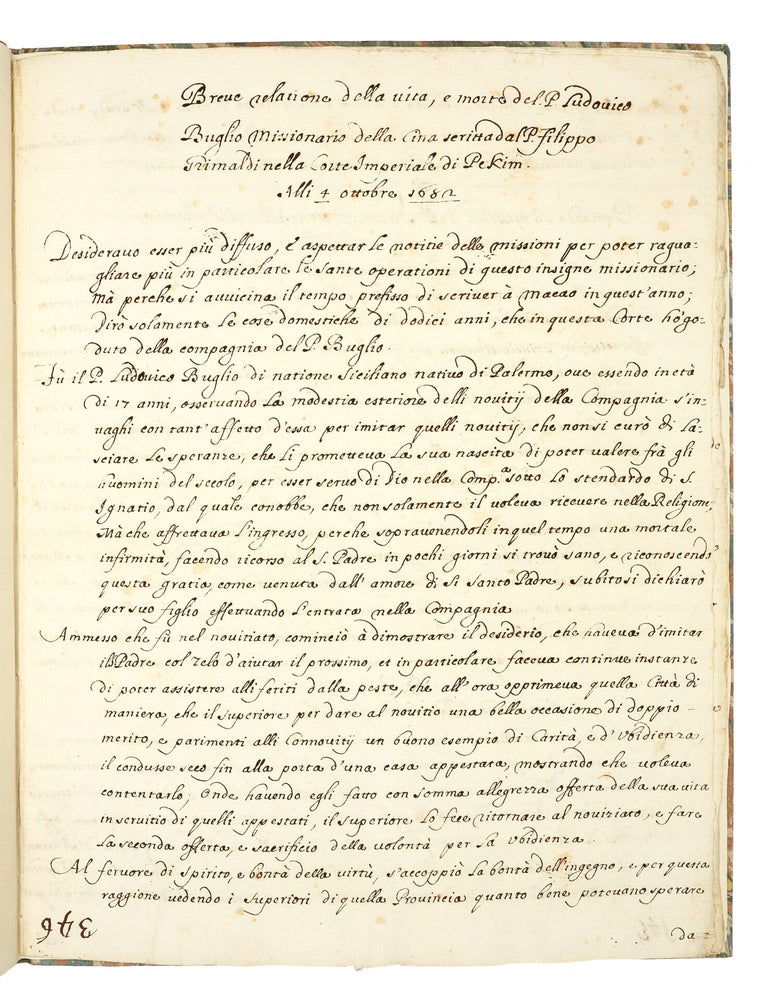 Breve relatione della vita, e morte del P. Ludovico
Buglio Missionario della Cina scritta dal P. Filippo
Grimaldi nella Corte Imperiale di Pekim.
Alli 4 ottobre 1682
Desideravo esser più diffuso, è aspettar le notitie delle missioni per poter ragua-
gliare più in particolare le sante operationi di questo insigne missionario;
mà perche si avvicina il tempo prefisso di scriver à Macao in quest'anno;
Dirò solamente le cose domestiche di dodici anni, che in questa Corte hò go-
duto della compagnia del P. Buglio.
Fù il P. Ludovico Buglio di natione Siciliano nativo di Palermo, ove essendo in età
di 17 anni, osservando la modestia esteriore delli novitij della Compagnia s'in-
vaghì con tant'affetto d'essa per imitar quelli novitij, che non si curò di la-
sciare le speranze, che li prometteva la sua nascita di poter valere frà gli
huomini del secolo, per esser servo di Dio nella Comp.a sotto lo stendardo di S.
Ignatio, dal quale conobbe, che non solamente il voleva ricevere nella Religione;
Mà che affrettava l'ingresso, perche sopravenendoli in quel tempo una mortale
infirmità, facendo ricorso al S. Padre in pochi giorni si trovò sano, e riconoscendo
questa gratia, come venuta dall'amore di sì Santo Padre, subito si dichiarò
per suo figlio effettuando l'entrata nella Compagnia
Ammesso che fù nel novitiato, cominciò à dimostrare il desiderio, che haveva d'imitar
il Padre col zelo d'aiutar il prossimo, et in particolare faceva continue instanze
di poter assistere alli feriti dalla peste, che all'ora opprimeva quella Città di
maniera, che il superiore per dare al novitio una bella occasione di doppio -
merito, e parimenti alli Connovitij un buono esempio di Carità, e d'Vbidienza,
il condusse seco fin alla porta d'una casa appestata, mostrando che voleva
contentarlo; Onde havendo egli fatto con somma allegrezza offerta della sua vita
in servitio di quelli appestati, il superiore lo fece ritornare al noviziato, e fare
la seconda offerta, e sacrificio della volontà per la Vbidienza.
Al fervore di Spirito, e bontà della virtù, s'accoppiò la bontà dell'ingegno, e per questa
raggione vedendo i superiori di quella Provincia quanto bene potevano sperare
da
346